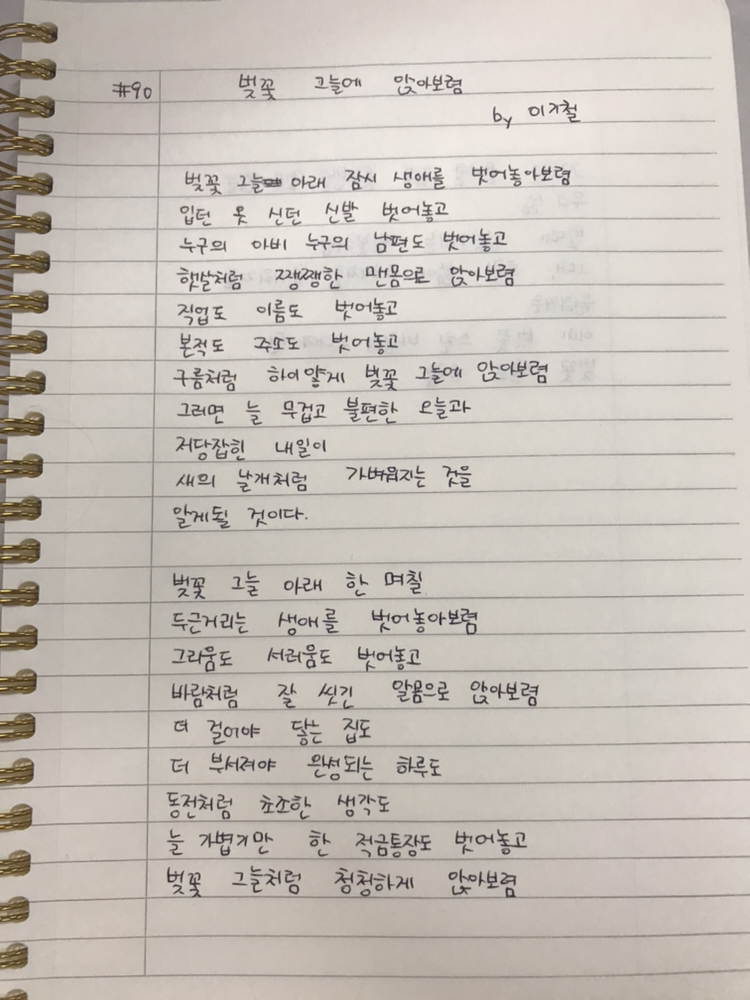 #90 벚꽃 그늘에 앉아보렴
by 이기철
벚꽃 그늘 아래 잠시 생애를 벗어놓아보렴
입던 옷 신던 신발 벗어놓고
누구의 아비 누구의 남편도 벗어놓고
햇살처럼 쨍쨍한 맨몸으로 앉아보렴
직업도 이름도 벗어놓고
본적도 주소도 벗어놓고
구름처럼 하이얗게 벚꽃 그늘에 앉아보렴
그러면 늘 무겁고 불편한 오늘과
저당잡힌 내일이
새의 날개처럼 가벼워지는 것을
알게될 것이다.
벚꽃 그늘 아래 한 며칠
두근거리는 생애를 벗어놓아보렴
그리움도 서러움도 벗어놓고
바람처럼 잘 씻긴 알몸으로 앉아보렴
더 걸어야 닿는 집도
더 부서져야 완성되는 하루도
동전처럼 초조한 생각도
늘 가볍기만 한 적금통장도 벗어놓고
벚꽃 그늘처럼 청청하게 앉아보렴